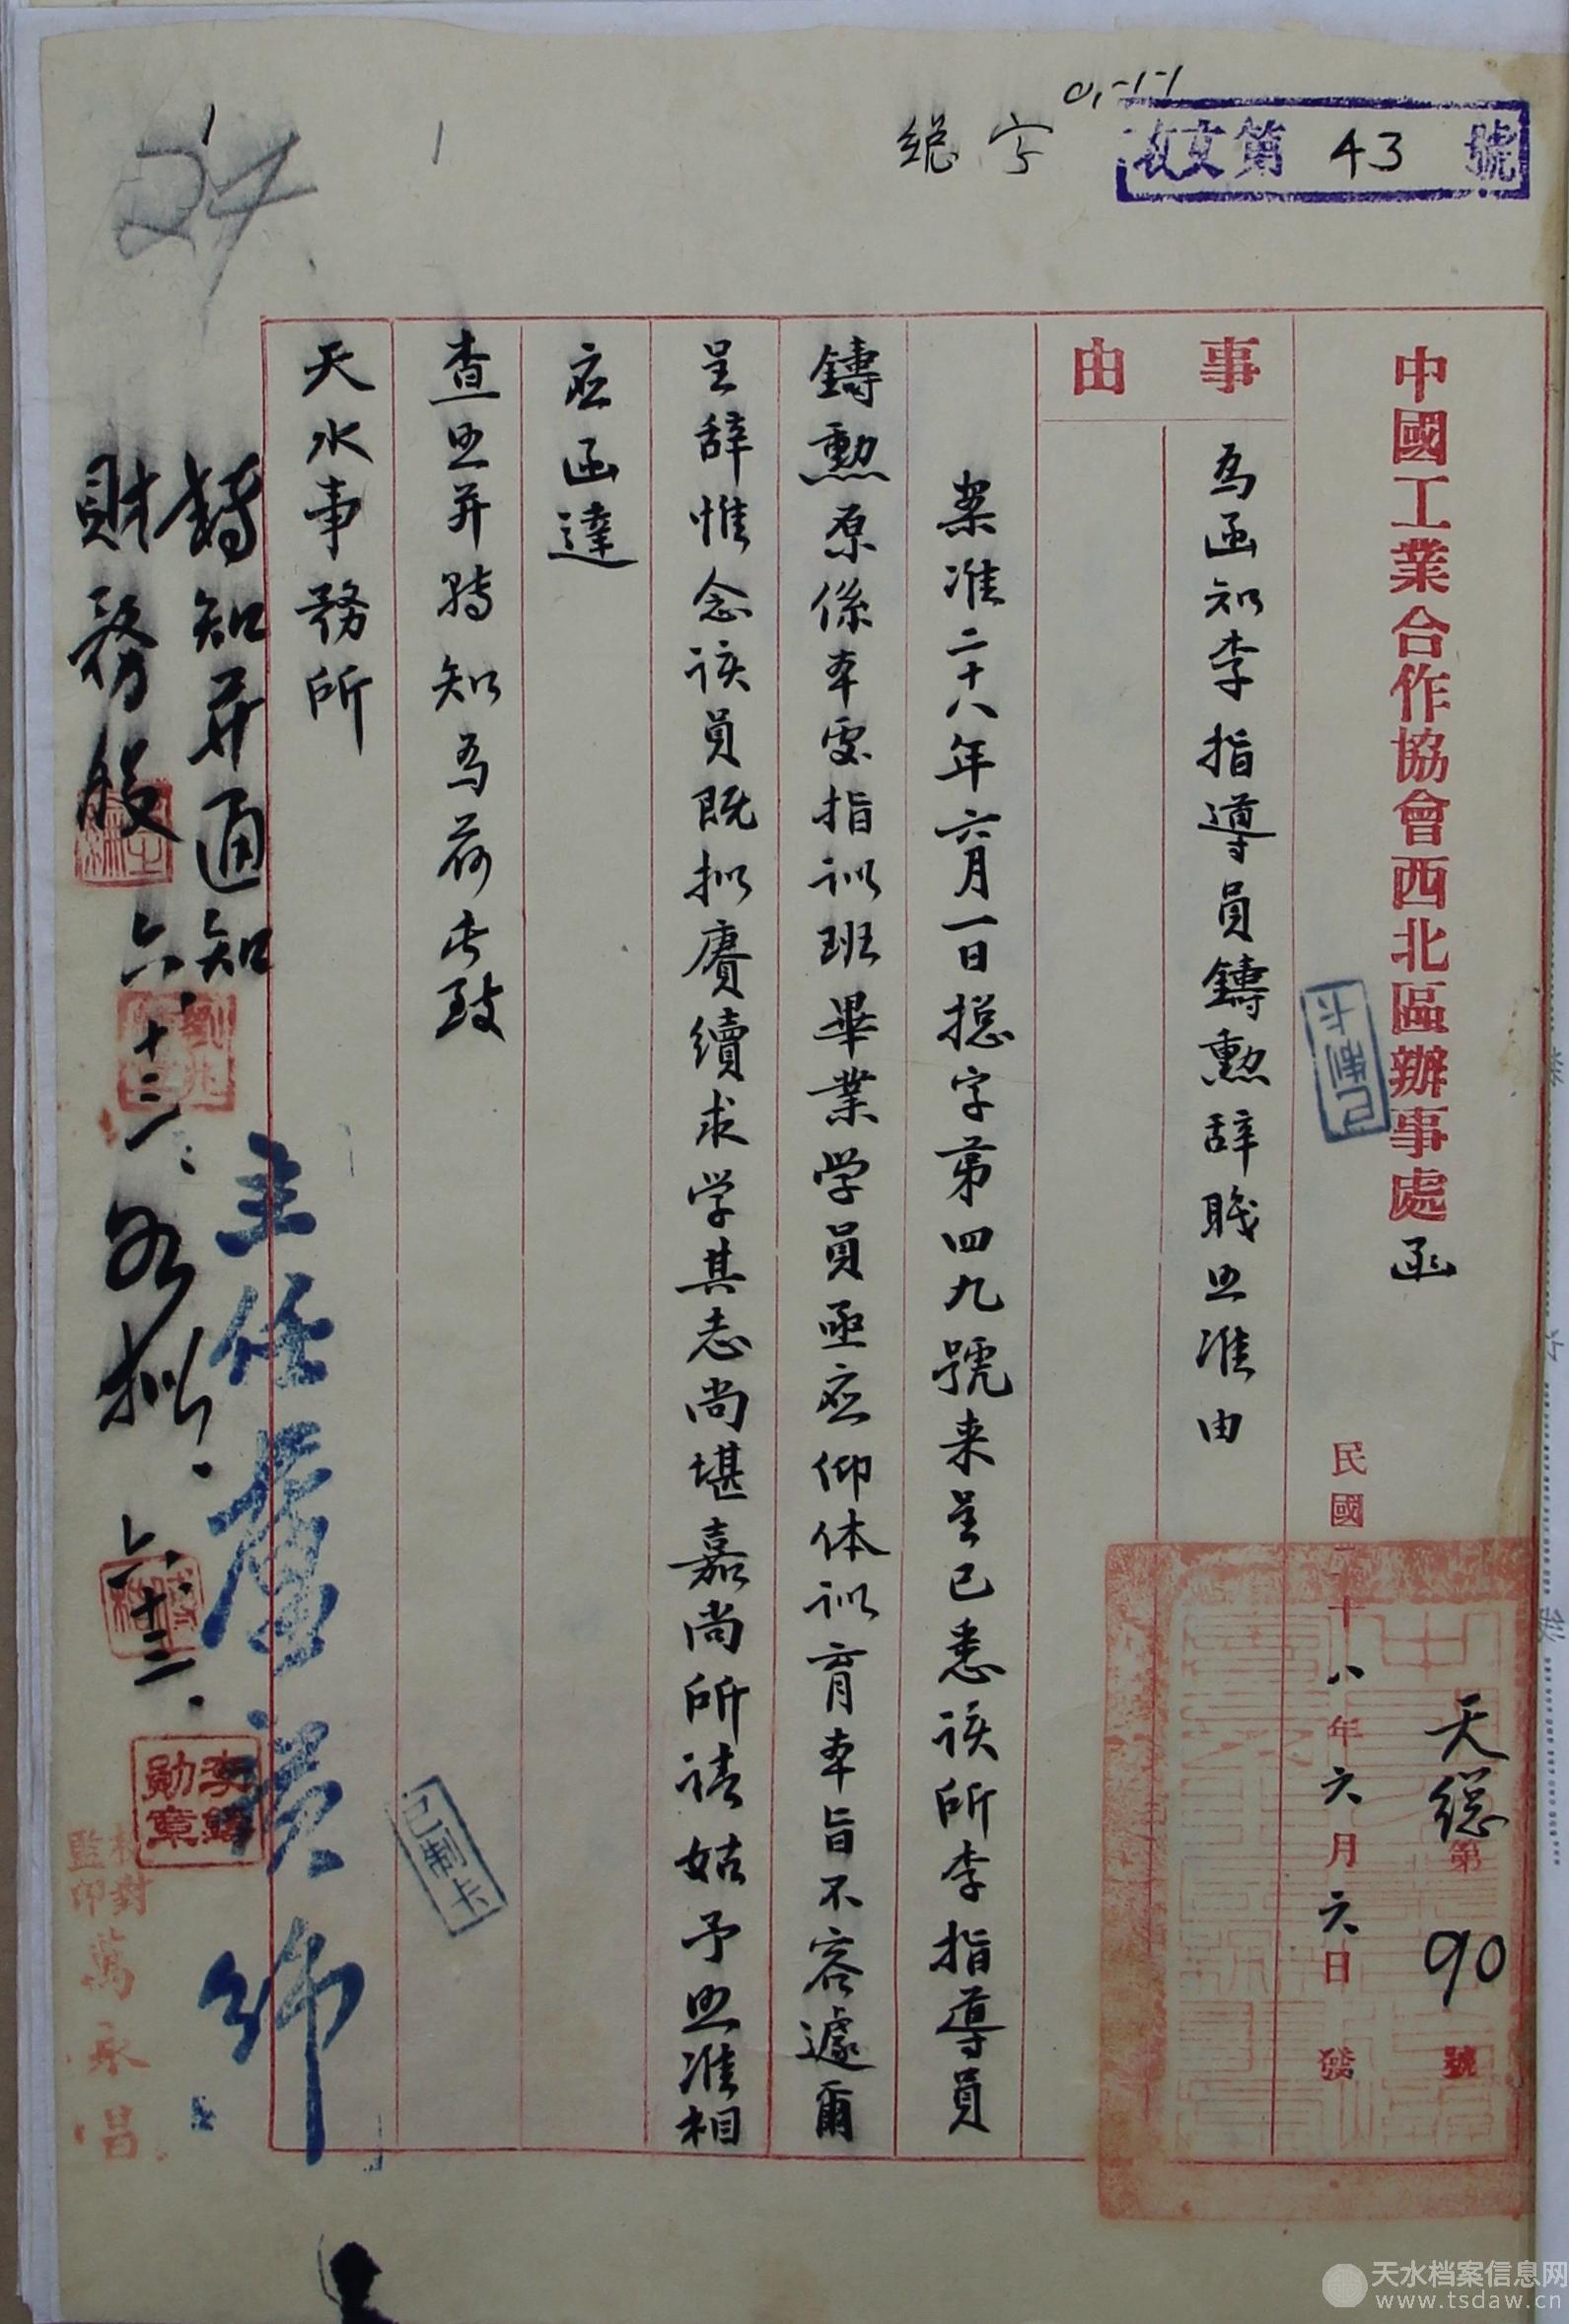 收文第 43 號
總字
中國工業合作協會西北區辦事處函
天總第 90 號
民國二十八年六月六日發
事由
為函知李指導員鑄勳辭職照准由
案准二十八年六月一日總字第四九號來呈已悉該所李指導員
鑄勳原係本處指訓班畢業学員亟应仰体訓育本旨不容遽爾
呈辞惟念该員既拟賡續求学其志尚堪嘉尚所请姑予照准相
应函達
查照并轉知為荷此致
天水事務所
主任
轉知并通知
財務股
六.十三.
六.十三.
已制卡
已制卡
李鑄勛章
校對
監印
萬永昌
24
天水档案信息网
www.tsdaw.cn